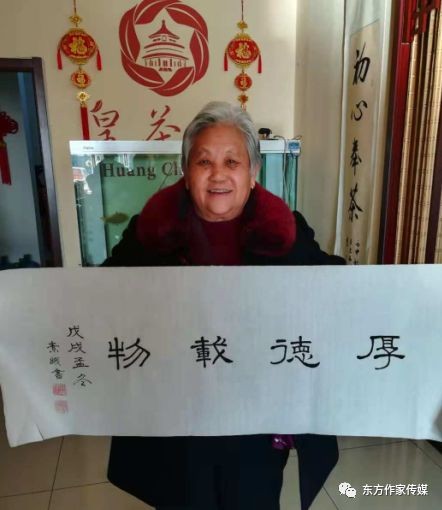 皇茶
Huang
福
福
初心奉茶
厚德載物
戊戌孟冬
素書
东方作家传媒